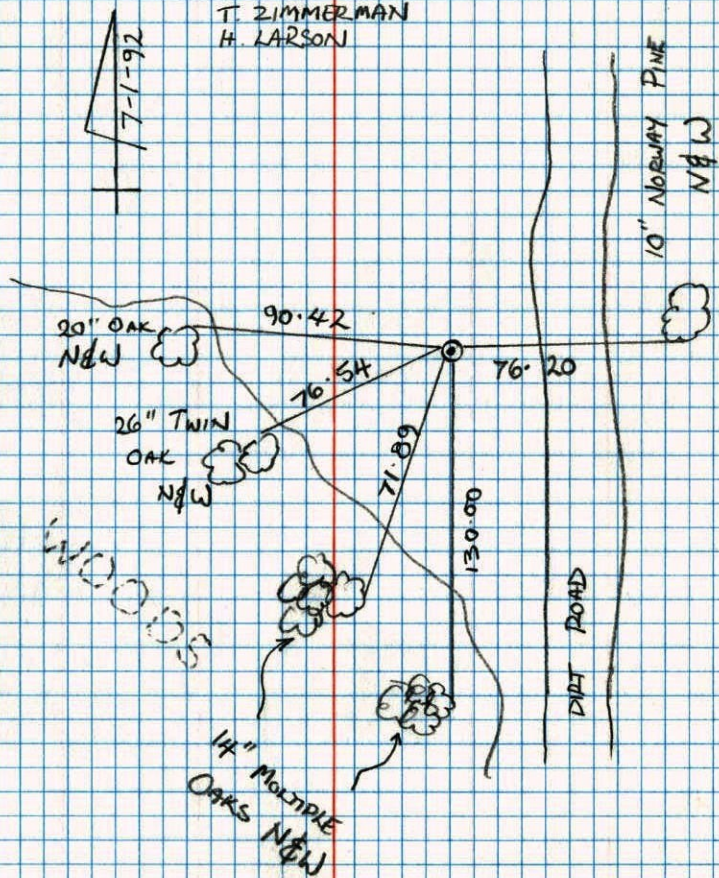 T. ZIMMERMAN
H. LARSON
7-1-92
10" NORWAY PINE
N&W
20" OAK
N&W
90.42
76.54
76.20
26" TWIN
OAK
N&W
71.89
130.00
WOODS
DIRT ROAD
14" MULTIPLE
OAKS N&W